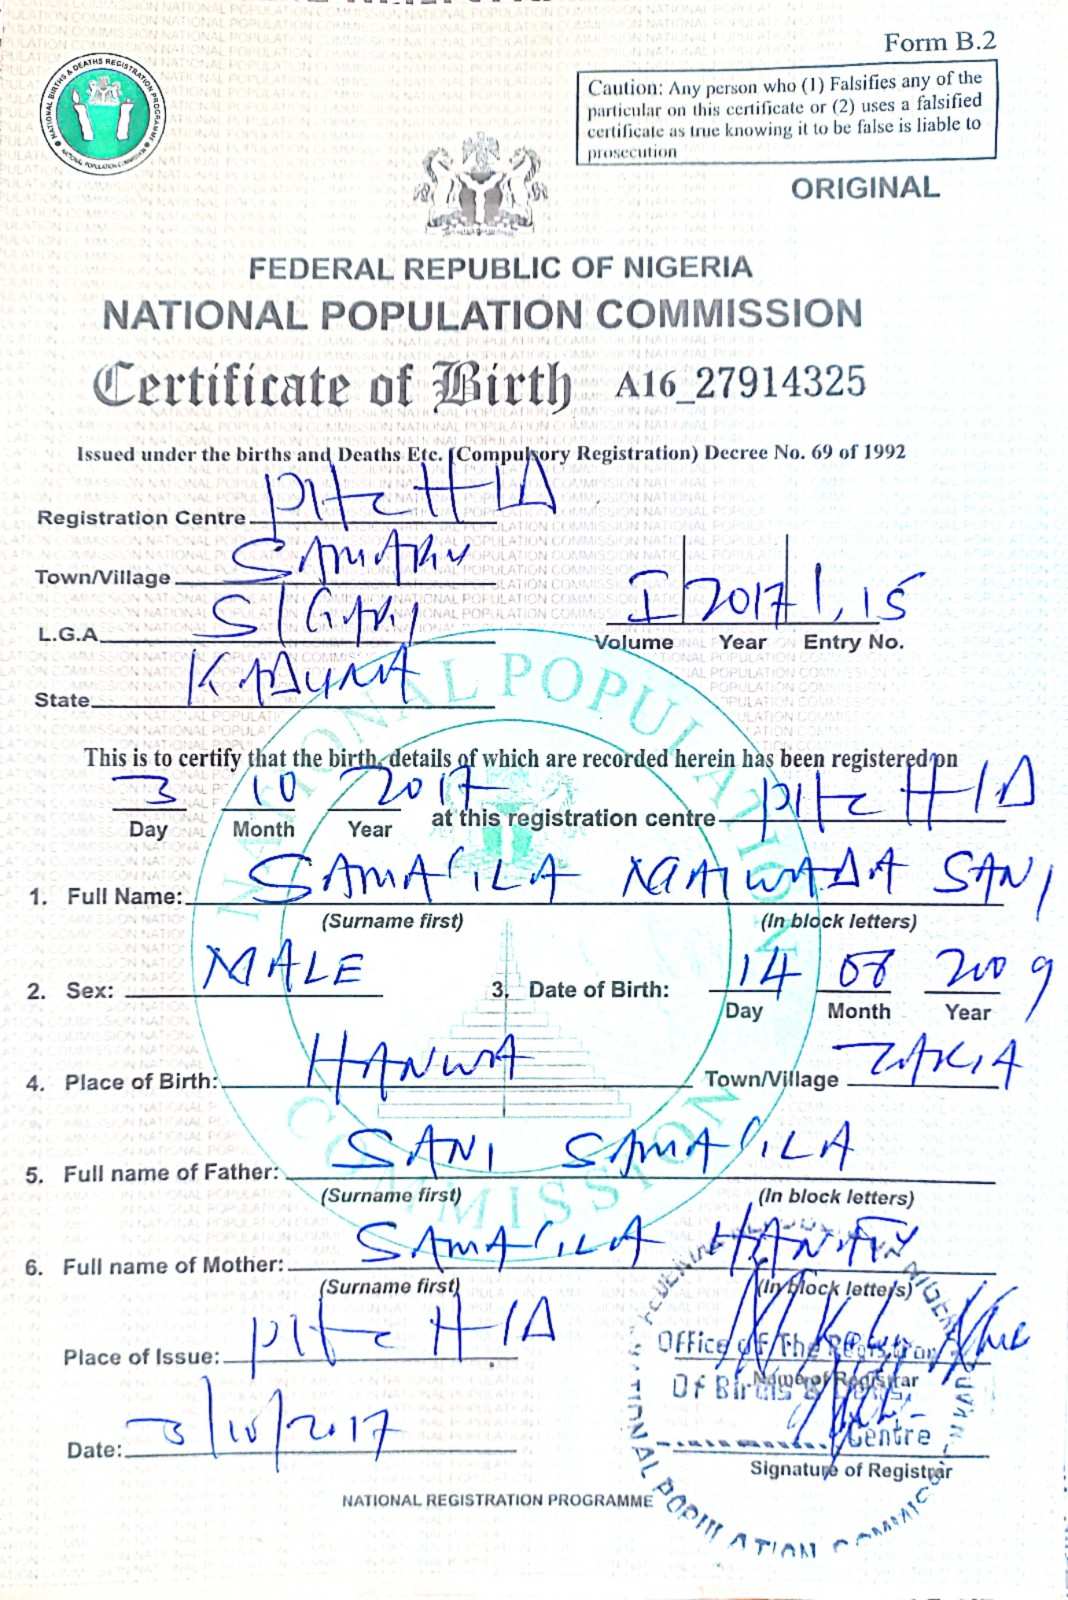 Form B.2
NATIONAL BIRTHS & DEATHS REGISTRATION PROGRAMME
NATIONAL POPULATION COMMISSION
Caution: Any person who (1) Falsifies any of the
particular on this certificate or (2) uses a falsified
certificate as true knowing it to be false is liable to
prosecution
ORIGINAL
FEDERAL REPUBLIC OF NIGERIA
NATIONAL POPULATION COMMISSION
Certificate of Birth A16_27914325
Issued under the births and Deaths Etc. (Compulsory Registration) Decree No. 69 of 1992
Registration Centre
Town/Village SAMARU
L.G.A. S/GARI
State KADUNA
I 2017 1,15
Volume Year Entry No.
NATIONAL POPULATION COMMISSION
This is to certify that the birth, details of which are recorded herein has been registered on
3 10 2017 at this registration centre
Day Month Year
1. Full Name: SAMA'ILA NAIWADA SANI
(Surname first) (In block letters)
2. Sex: MALE 3. Date of Birth: 14 08 2009
Day Month Year
4. Place of Birth: HANWA Town/Village ZARIA
5. Full name of Father: SANI SAMA'ILA
(Surname first) (In block letters)
6. Full name of Mother: SAMA'ILA
(Surname first) (In block letters)
Place of Issue:
Name of Registrar
Date: 3/10/2017
Signature of Registrar
Office of The Registrar
Of Births &
Centre
NATIONAL POPULATION COMMISSION
NATIONAL REGISTRATION PROGRAMME